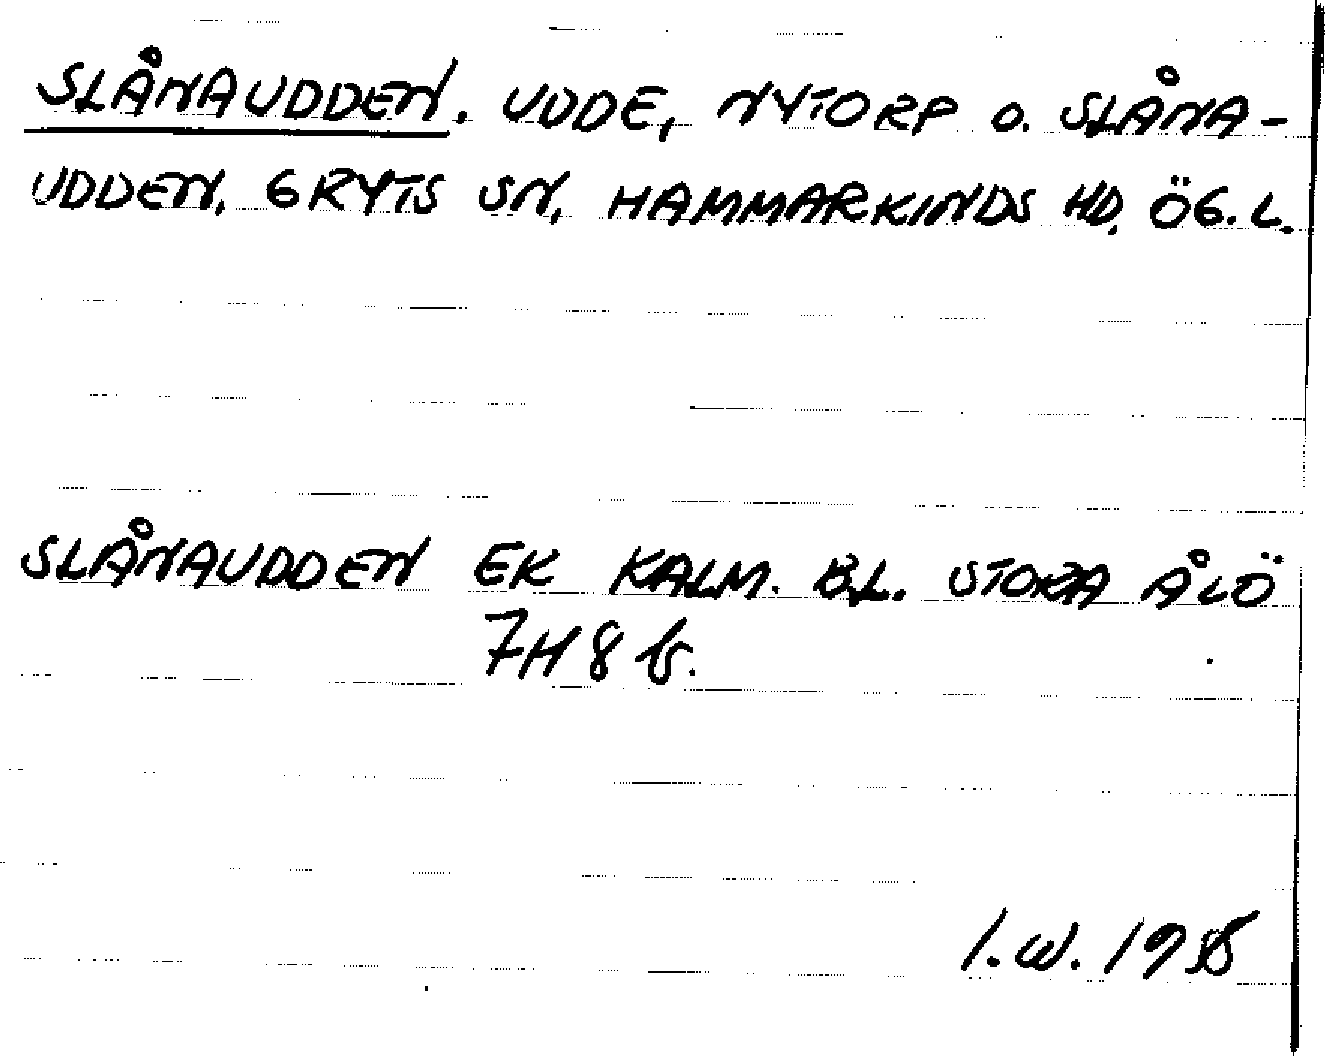 SLÅNAUDDEN. UDDE, NYTORP O. SLÅNA-
UDDEN, GRYTS SN, HAMMARKINDS HD, ÖG.L.
SLÅNAUDDEN EK KALM. BL. STORA ÅLÖ
7H8b.
I.W.